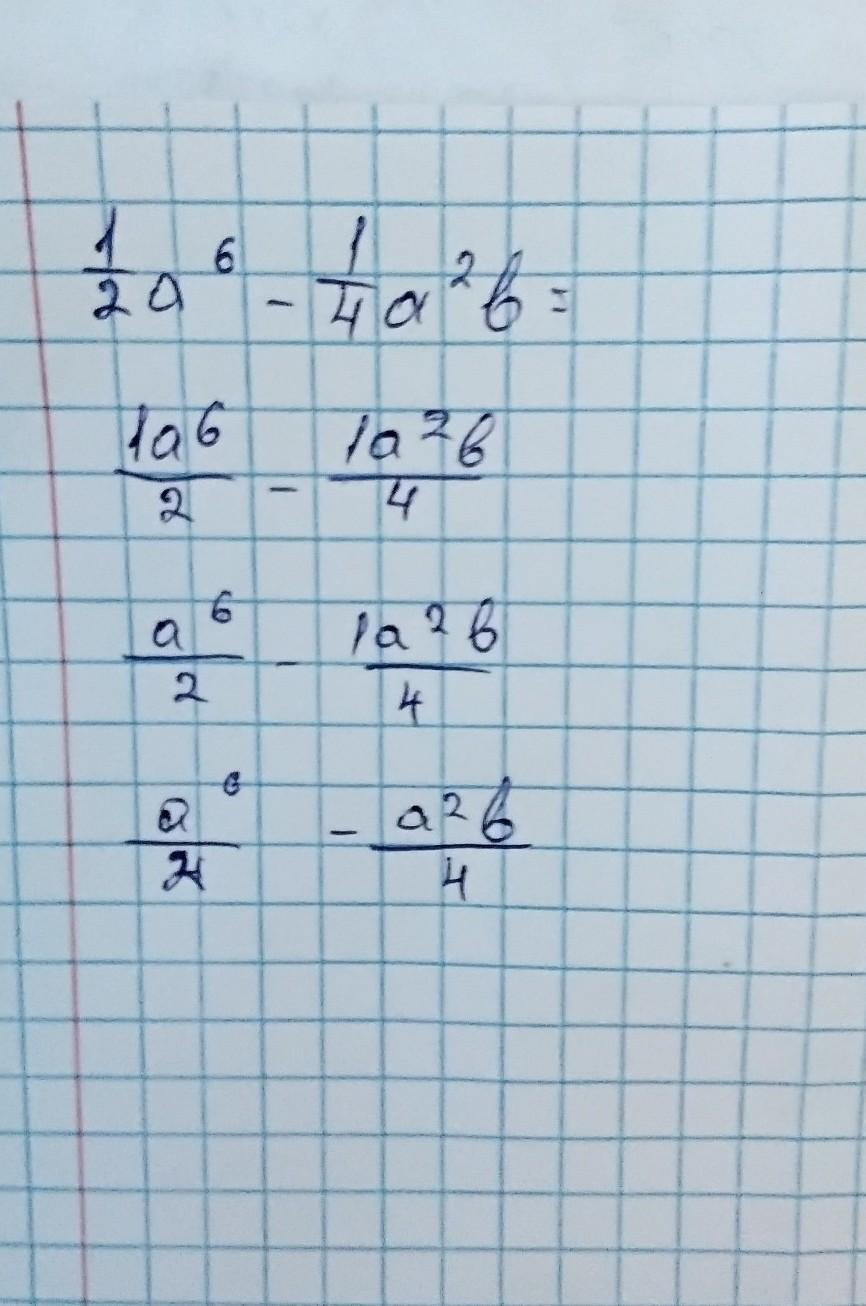 1/2 a⁶ - 1/4 a²b =
1a⁶/2 - 1a²b/4
a⁶/2 - 1a²b/4
a⁶/2 - a²b/4